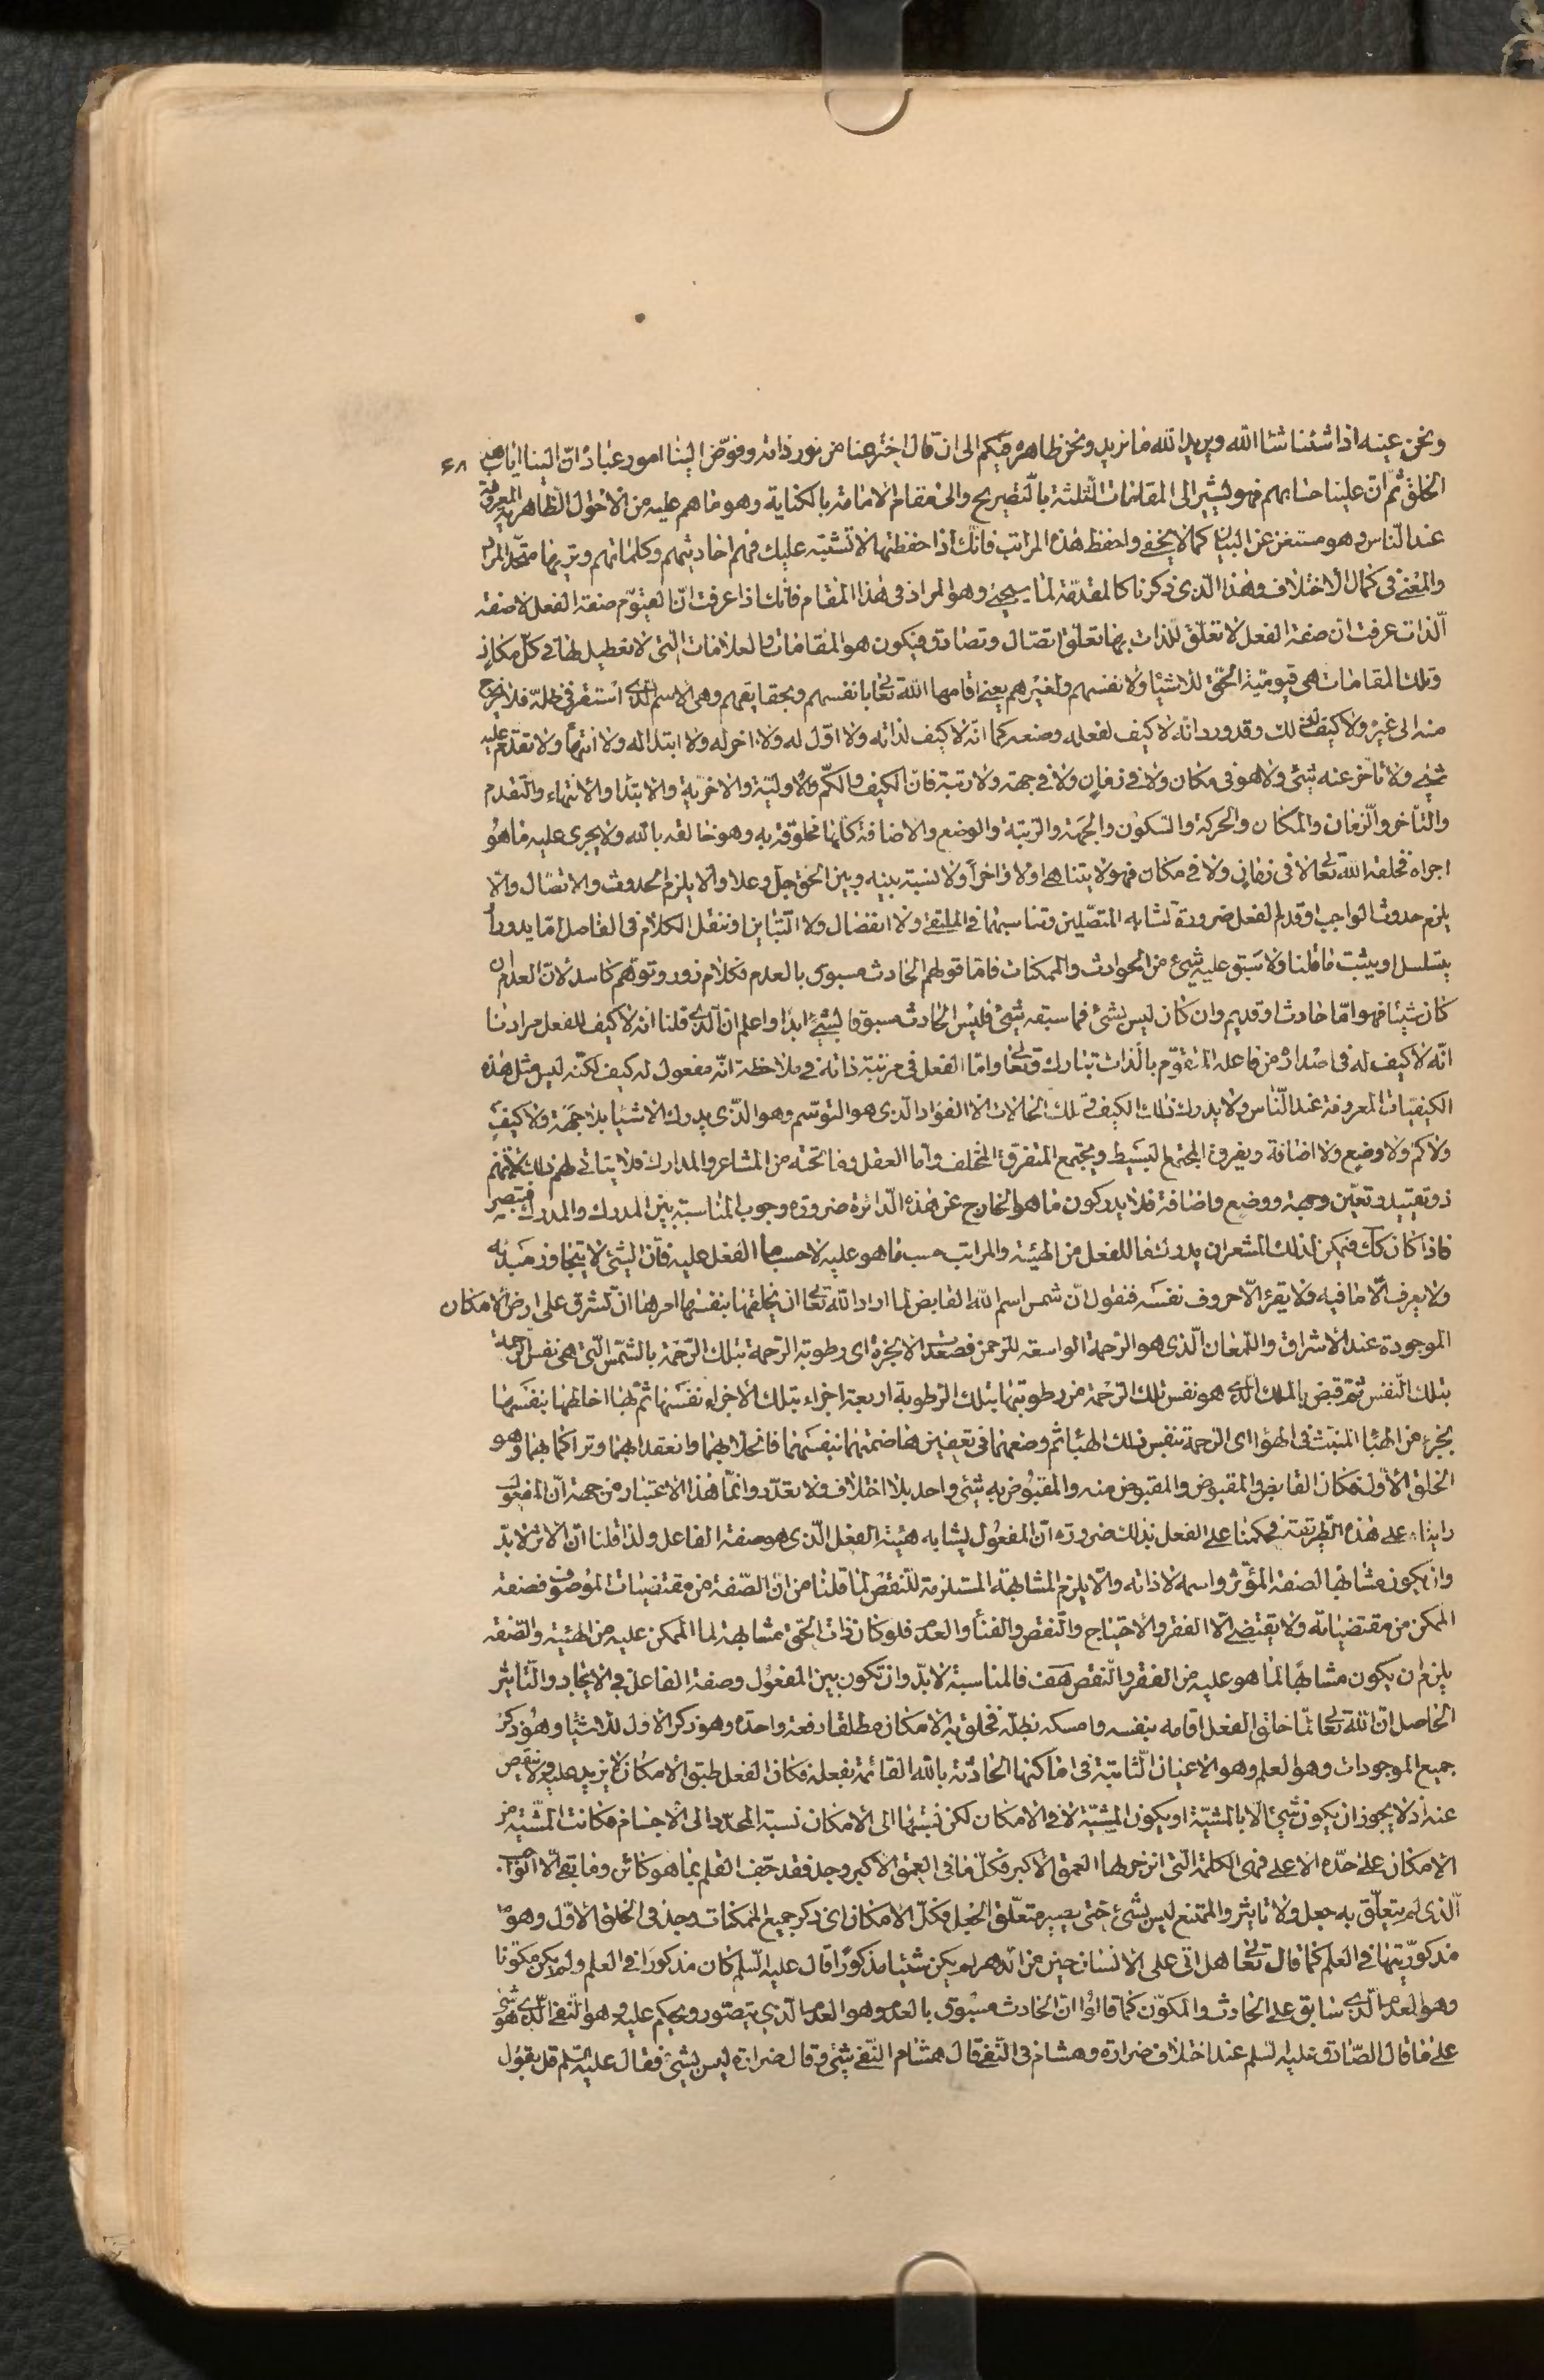 ونحن عينه اذا شئنا شاء الله ويريد الله ما نريد ونحن ظاهره فيكم الى ان قال اخترعنا من نور ذاته وفوّض الينا امور عباده انّ الينا اياب هذا ۶۸
الخلق ثم ان علينا حسابهم فهو يشير الى المقامات الثلثة بالتصريح والى مقام الامامة بالكناية وهو ما هم عليه من الاحوال الظاهرية المعروفة
عند الناس وهو مستغن عن البيان كما لا يخفى واحفظ هذه المراتب فانك اذا حفظتها لا تشتبه عليك فهم احاديثهم وكلماتهم وتريها متحد المراد
والمعنى في كمال الاختلاف وهذا الذي ذكرنا كالمقدمة لما سيجئ وهو المراد في هذا المقام فانك اذا عرفت انّ القيّوم صفة الفعل لا صفة
الذات عرفت ان صفة الفعل لا تعلق للذات بها تعلق اتصال وتصادق فيكون هو المقامات والعلامات التي لا تعطيل لها في كل مكان
وتلك المقامات هي قيومية الحق للاشياء ولانفسهم ولغيرهم يعني اقامها الله تعالى بانفسهم وبحقايقهم وهي الاسم الذي استقر في ظله فلا يخرج
منه الى غيره ولا كيف لذلك وقد ورد انه لا كيف لفعله وصنعه كما انّه لا كيف لذاته ولا اوّل له ولا اخر له ولا ابتداء له ولا انتهاء ولا تقدم عليه
شئ ولا تأخر عنه شئ ولا هو في مكان ولا في زمان ولا في جهة ولا رتبة فان الكيف والكمّ والاوليّة والاخرية والابتداء والانتهاء والتقدم
والتأخر والزمان والمكان والحركة والسكون والجهة والرتبة والوضع والاضافة كلها مخلوقة به وهو خالقه بالله ولا يجري عليه ما هو
اجراه فخلقه الله تعالى لا في زمان ولا في مكان فهو لا يتناهى اولا واخرا ولا نسبة بينه وبين الحق جل وعلا والا يلزم الحدوث والاتصال والا
يلزم حدوث الواجب او قدم الفعل ضرورة تشابه المتصلين وتناسبهما في الملتقى ولا انفصال ولا التباين او ننقل الكلام في الفاصل امّا يدور او
يتسلسل او يثبت ما قلنا ولا سبق عليه شئ من الحوادث والممكنات فاما قولهم الحادث مسبوق بالعدم فكلام زور وتوهم كاسد لان العدم ان
كان شيئا فهو امّا حادث او قديم وان كان ليس بشئ فما سبقه شئ فليس الحادث مسبوقا بشئ ابدا واعلم ان الذي قلنا انه لا كيف للفعل مرادنا
انّه لا كيف له في اصداره من فاعله المتقوّم بالذات تبارك وتعالى وامّا الفعل في مرتبة ذاته في ملاحظة انّه مفعول له كيف لكنّه ليس مثل هذه
الكيفيات المعروفة عند الناس ولا يدرك ذلك الكيف في تلك الحالات الا الفؤاد الذي هو التوسّم وهو الذي يدرك الاشياء بلا جهة ولا كيف
ولا كم ولا وضع ولا اضافة ويفرق المجتمع البسيط ويجتمع المتفرق المختلف وامّا العقل وما تحته من المشاعر والمدارك فلا يتاتى لهم ذلك لانهم
ذو تقييد وتعيّن وجهة ووضع واضافة فلا يدركون ما هو الخارج عن هذه الدائرة ضرورة وجوب المناسبة بين المدرك والمدرك فتبصر
فاذا كان كك فيمكن لذلك المشعر ان يدرك ما للفعل من الهيئة والمراتب حسب ما هو عليه لا حسب ما الفعل عليه فان الشئ لا يتجاوز مبدئه
ولا يعرف الّا ما فيه ولا يقرء الّا حروف نفسه فنقول انّ شمس اسم الله القابض لما اراد الله تعالى ان يخلقها بنفسها امرها ان تشرق على ارض الامكان
الموجودة عند الاشراق واللمعان الذي هو الرحمة الواسعة للرحمن فصعدت الابخرة اي رطوبة الرحمة بتلك الرحمة بالشمس التي هي نفس الرحمة
بتلك النفس ثم قبض بالملك الذي هو نفس تلك الرحمة من رطوبتها بتلك الرطوبة اربعة اجزاء بتلك الاجزاء نفسها ثم لها احاطها بنفسها
بجزء من الهباء المنبث في الهواء اي الرحمة بنفس ذلك الهباء ثم وضعهما في تعفين هاضمتهما بنفسهما فانحلا بهما وانعقدا بهما وتراكما بهما وهو
الخلق الاول فكان القابض والمقبوض والمقبوض منه والمقبوض به شئ واحد بلا اختلاف ولا تعدّد وانّما هذا الاعتبار من جهة ان المفعول
رايناه على هذه الطريقة فحكمنا على الفعل بذلك ضرورة انّ المفعول يشابه هيئة الفعل الذي هو صفة الفاعل ولذا قلنا انّ الاثر لا بدّ
وان يكون مشابها لصفة المؤثر واسمه لا ذاته والّا يلزم المشابهة المستلزمة للنقص لما قلنا من انّ الصّفة من مقتضيات الموصوف فصفة
الممكن من مقتضياته ولا يقتضي الّا الفقر والاحتياج والنقص والفناء والعدم فلو كان ذات الحق مشابهة لما الممكن عليه من الهيئة والصفة
يلزم ان يكون مشابهًا لما هو عليه من الفقر والنقص هف فالمناسبة لا بدّ وان تكون بين المفعول وصفة الفاعل في الايجاد والتاثير
الحاصل انّ الله تعالى لمّا خلق الفعل اقامه بنفسه وامسكه بظلّه فخلق به الامكان مطلقا دفعة واحدة وهو ذكر الاول للاشياء وهو ذكر
جميع الموجودات وهو العلم وهو الاعيان الثابتة في اماكنها الحادثة بالله القائمة بفعله فكان الفعل طبق الامكان لا يزيد عليه ولا ينقص
عنه اذ لا يجوز ان يكون شئ الّا بالمشيّة او يكون المشيّة لا في الامكان لكن نسبتها الى الامكان نسبة المحدّد الى الاجسام فكانت المشيّة من
الامكان على حدّه الاعلى فهي الكلمة التي انزجر لها العمق الاكبر فكلّ ما في العمق الاكبر وجد فقد جف القلم بما هو كائن وما بقى الّا الواجب
الّذي لم يتعلّق به جعل ولا تاثير والممتنع ليس بشئ حتى يصير متعلّق الجعل فكلّ الامكان اي ذكر جميع الممكنات وجد في الخلق الاوّل وهو
مذكوريّتها في العلم كما قال تعالى هل اتى على الانسان حين من الدهر لم يكن شيئا مذكورًا قال عليه السلم كان مذكورا في العلم ولم يكن مكونا
وهو العدم الّذي سابق على الحادث والمكوّن كما قالوا انّ الحادث مسبوق بالعدم وهو العدم الذي يتصور ويحكم عليه وهو النفي الّذي هو شئ
على ما قال الصّادق عليه السلم عند اختلاف ضرارة وهشام في النفي قال هشام النّفي شئ وقال ضرارة ليس بشئ فقال عليه السلم قل بقول